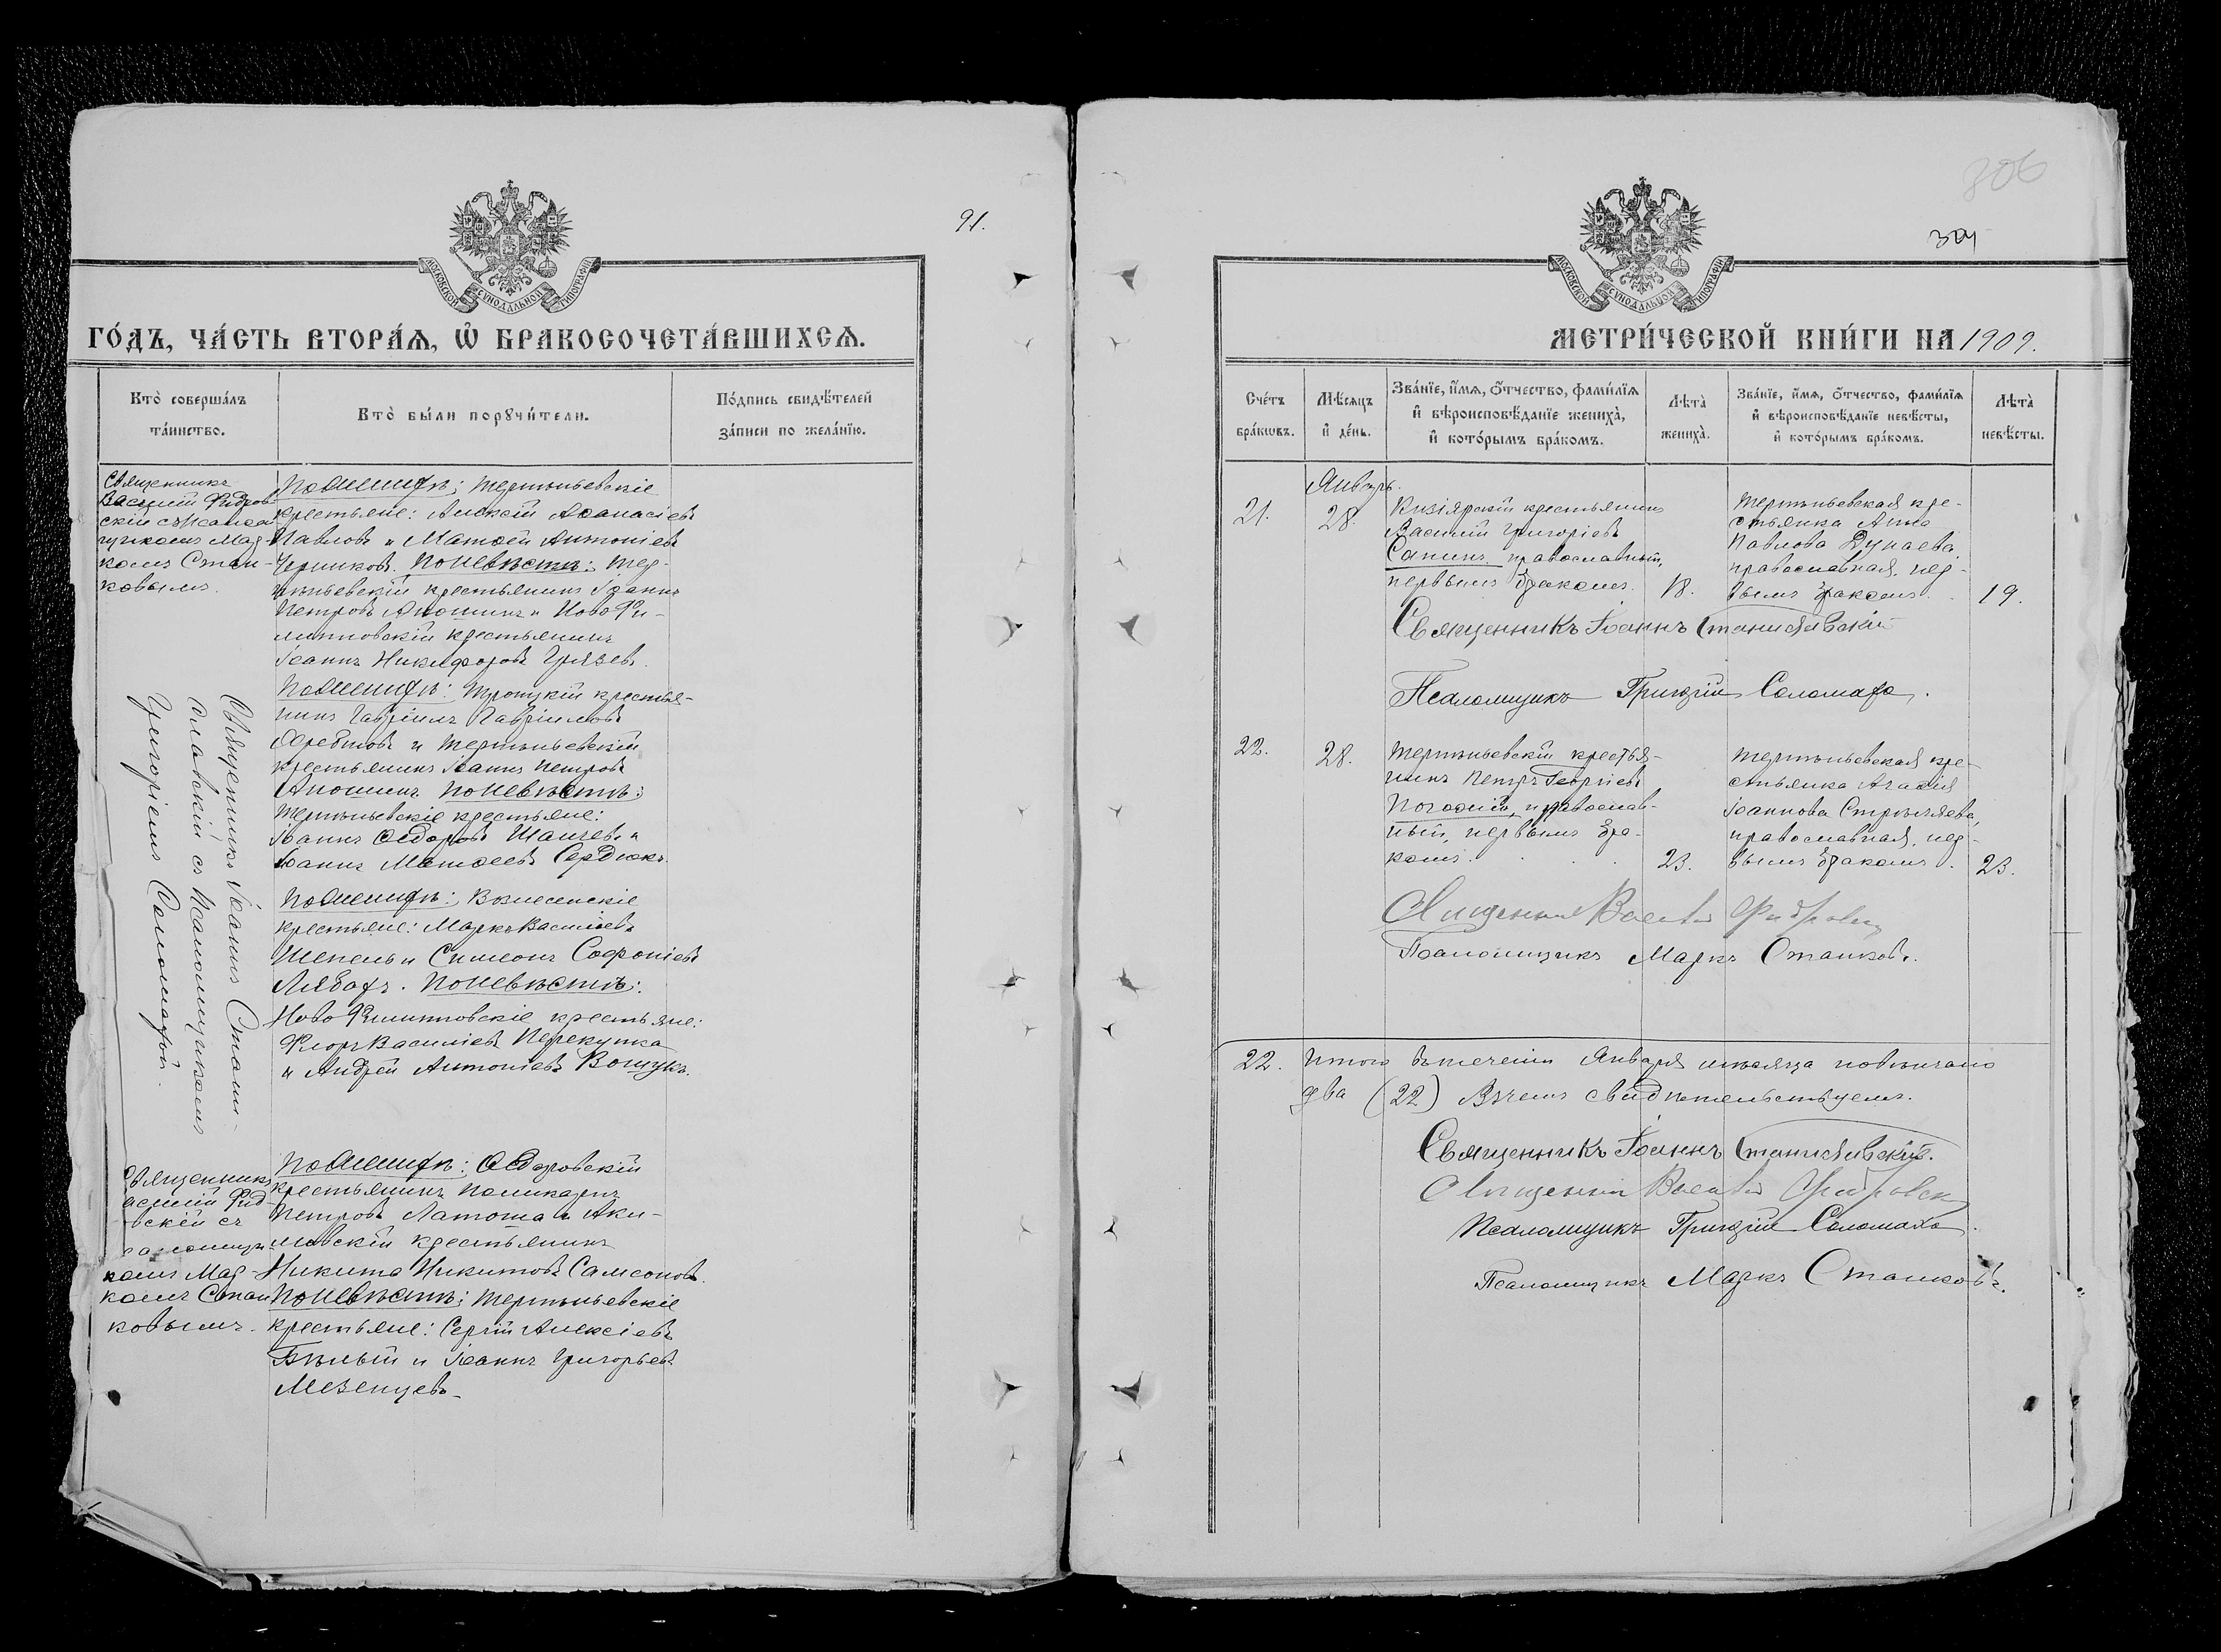 91.
МОСКОВСКОЙ СѴНОДАЛЬНОЙ ТИПОГРАФІИ
ГО́ДЪ, ЧА́СТЬ ВТОРА́Ѧ, Ѡ҆ БРАКОСОЧЕТА́ВШИХСѦ.
Кто̀ соверша́лъ
та́инство.
Кто̀ бы́ли порꙋчи́тели.
По́дпись свидѣ́телей
за́писи по жела́нїю.
Священникъ
Василій Фидров-
скій съ Псалом-
щикомъ Мар-
комъ Стан-
ковымъ.
По женихѣ: Терпѣньевскіе
крестьяне: Алексій Аѳанасіевъ
Павловъ и Матѳей Антоніевъ
Черниковъ. По невѣстѣ: Тер-
пѣньевскій крестьянинъ Іоаннъ
Петровъ Аношинъ и Ново Фи-
липповскій крестьянинъ
Іоаннъ Никифоровъ Грязевъ.
Священникъ Іоаннъ Стани-
славскій съ Псаломщикомъ
Григоріемъ Соломахой.
По женихѣ: Троицкій крестья-
нинъ Гавріилъ Гавріиловъ
и Терпѣньевскій
крестьянинъ Іоаннъ Петровъ
Аношинъ. По невѣстѣ:
Терпѣньевскіе крестьяне:
Іоаннъ Ѳедоровъ и
Іоаннъ Матѳеевъ Сердюкъ.
По женихѣ: Вознесенскіе
крестьяне: Маркъ Васильевъ
Шепель и Симеонъ Софроніевъ
Лябахъ. По невѣстѣ:
Ново Филипповскіе крестьяне:
Флоръ Василіевъ Перекупка
и Андрей Антоніевъ Вощукъ.
Священникъ
асилій Фид-
овскій съ
саломщи-
комъ Мар-
комъ Стан
ковымъ.
По женихѣ: Ѳедоровскій
крестьянинъ Поликарпъ
Петровъ Латоша и Аки-
мовскій крестьянинъ
Никита Никитовъ Самсоновъ.
По невѣстѣ: Терпѣньевскіе
крестьяне: Сергій Алексіевъ
Бѣлый и Іоаннъ Григорьевъ
Мезенцевъ.
306
МОСКОВСКОЙ СѴНОДАЛЬНОЙ ТИПОГРАФІИ
МЕТРИ́ЧЕСКОЙ КНИ́ГИ НА 1909.
Сче́тъ
бра́кѡвъ.
Мѣ́сѧцъ
и҆ де́нь.
Зва́нїе, и҆́мѧ, ѻ҆́тчество, фами́лїѧ
и҆ вѣроисповѣ́данїе жениха̀,
и҆ кото́рымъ бра́комъ.
Лѣ́та̀
жениха̀.
Зва́нїе, и҆́мѧ, ѻ҆́тчество, фами́лїѧ
и҆ вѣроисповѣ́данїе невѣ́сты,
и҆ кото́рымъ бра́комъ.
Лѣ́та̀
невѣ́сты.
Январь.
21.
28.
Кизіярскій крестьянинъ
Василій Григоріевъ
Сапинъ, православный,
первымъ бракомъ.
18.
Терпѣньевская кре-
стьянка Анна
Павлова Дунаева,
православная, пер-
вымъ бракомъ.
19.
Священникъ Іоаннъ Станиславскій
Псаломщикъ Григорій Соломаха.
22.
28.
Терпѣньевскій крестья-
нинъ Петръ Георгіевъ
Погожій, православ-
ный, первымъ бра-
комъ.
23.
Терпѣньевская кре-
стьянка Агаѳія
Іоаннова Стрѣляева,
православная, пер-
вымъ бракомъ.
23.
Священникъ Василій Фидровскій
Псаломщикъ Маркъ Станковъ.
22. Итого въ теченіи Января мѣсяца повѣнчано
два (22) Въ чемъ свидѣтельствуемъ.
Священникъ Іоаннъ Станиславскій.
Священникъ Василій Фидровск
Псаломщикъ Григорій Соломаха.
Псаломщикъ Маркъ Станковъ.